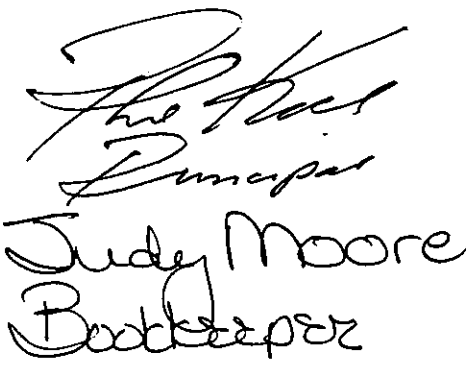 Principal
Judy Moore
Bookkeeper